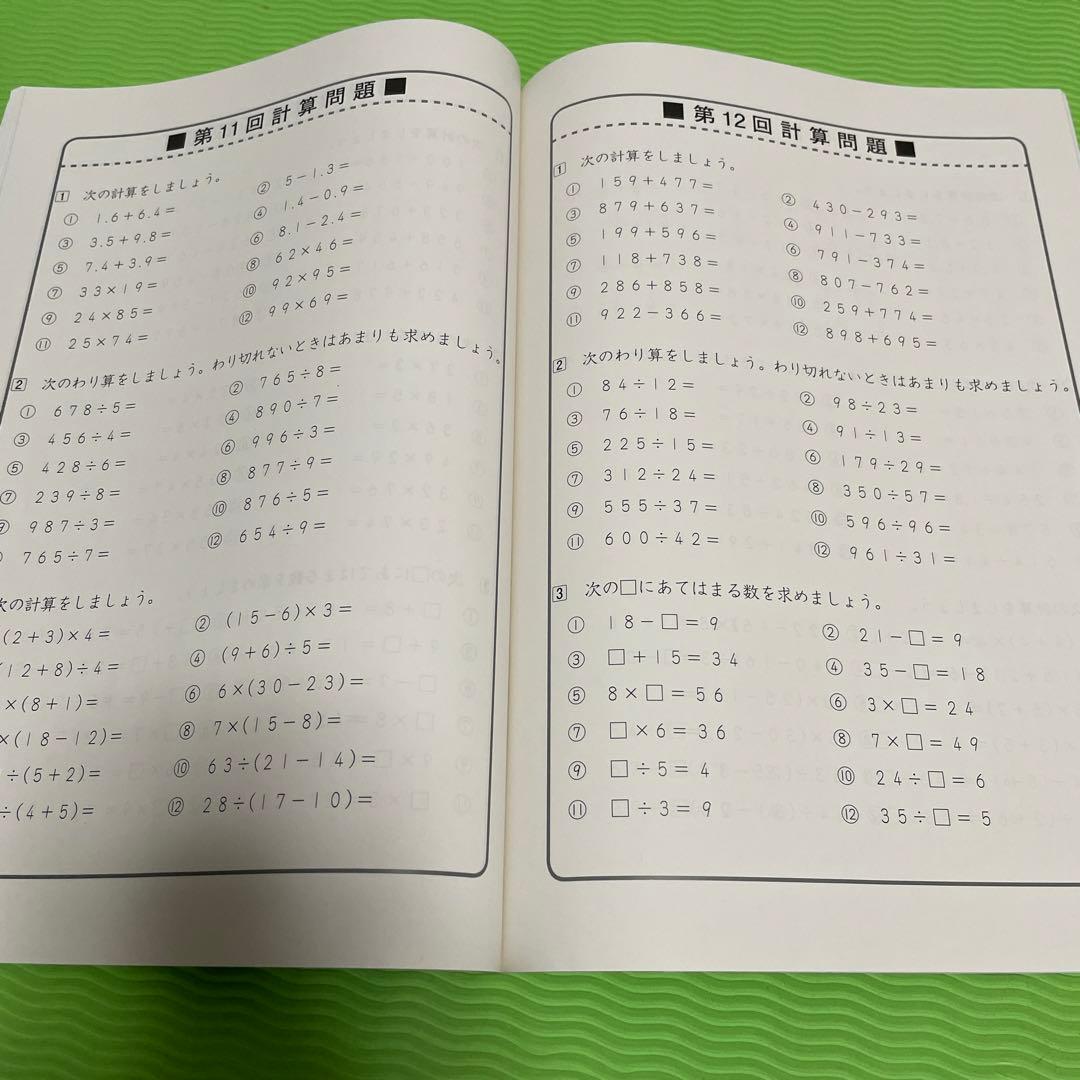 ■ 第11回計算問題 ■
1 次の計算をしましょう。
① 1.6+6.4= ② 5-1.3=
③ 3.5+9.8= ④ 1.4-0.9=
⑤ 7.4+3.9= ⑥ 8.1-2.4=
⑦ 33×19= ⑧ 62×46=
⑨ 24×85= ⑩ 92×95=
⑪ 25×74= ⑫ 99×69=
2 次のわり算をしましょう。わり切れないときはあまりも求めましょう。
① 678÷5= ② 765÷8=
③ 456÷4= ④ 890÷7=
⑤ 428÷6= ⑥ 996÷3=
⑦ 239÷8= ⑧ 877÷9=
⑨ 987÷3= ⑩ 876÷5=
765÷7= ⑫ 654÷9=
次の計算をしましょう。
(2+3)×4= ② (15-6)×3=
(12+8)÷4= ④ (9+6)÷5=
×(8+1)= ⑥ 6×(30-23)=
×(18-12)= ⑧ 7×(15-8)=
÷(5+2)= ⑩ 63÷(21-14)=
÷(4+5)= ⑫ 28÷(17-10)=
■ 第12回計算問題 ■
1 次の計算をしましょう。
① 159+477= ② 430-293=
③ 879+637= ④ 911-733=
⑤ 199+596= ⑥ 791-374=
⑦ 118+738= ⑧ 807-762=
⑨ 286+858= ⑩ 259+774=
⑪ 922-366= ⑫ 898+695=
2 次のわり算をしましょう。わり切れないときはあまりも求めましょう。
① 84÷12= ② 98÷23=
③ 76÷18= ④ 91÷13=
⑤ 225÷15= ⑥ 179÷29=
⑦ 312÷24= ⑧ 350÷57=
⑨ 555÷37= ⑩ 596÷96=
⑪ 600÷42= ⑫ 961÷31=
3 次の□にあてはまる数を求めましょう。
① 18-□=9 ② 21-□=9
③ □+15=34 ④ 35-□=18
⑤ 8×□=56 ⑥ 3×□=24
⑦ □×6=36 ⑧ 7×□=49
⑨ □÷5=4 ⑩ 24÷□=6
⑪ □÷3=9 ⑫ 35÷□=5